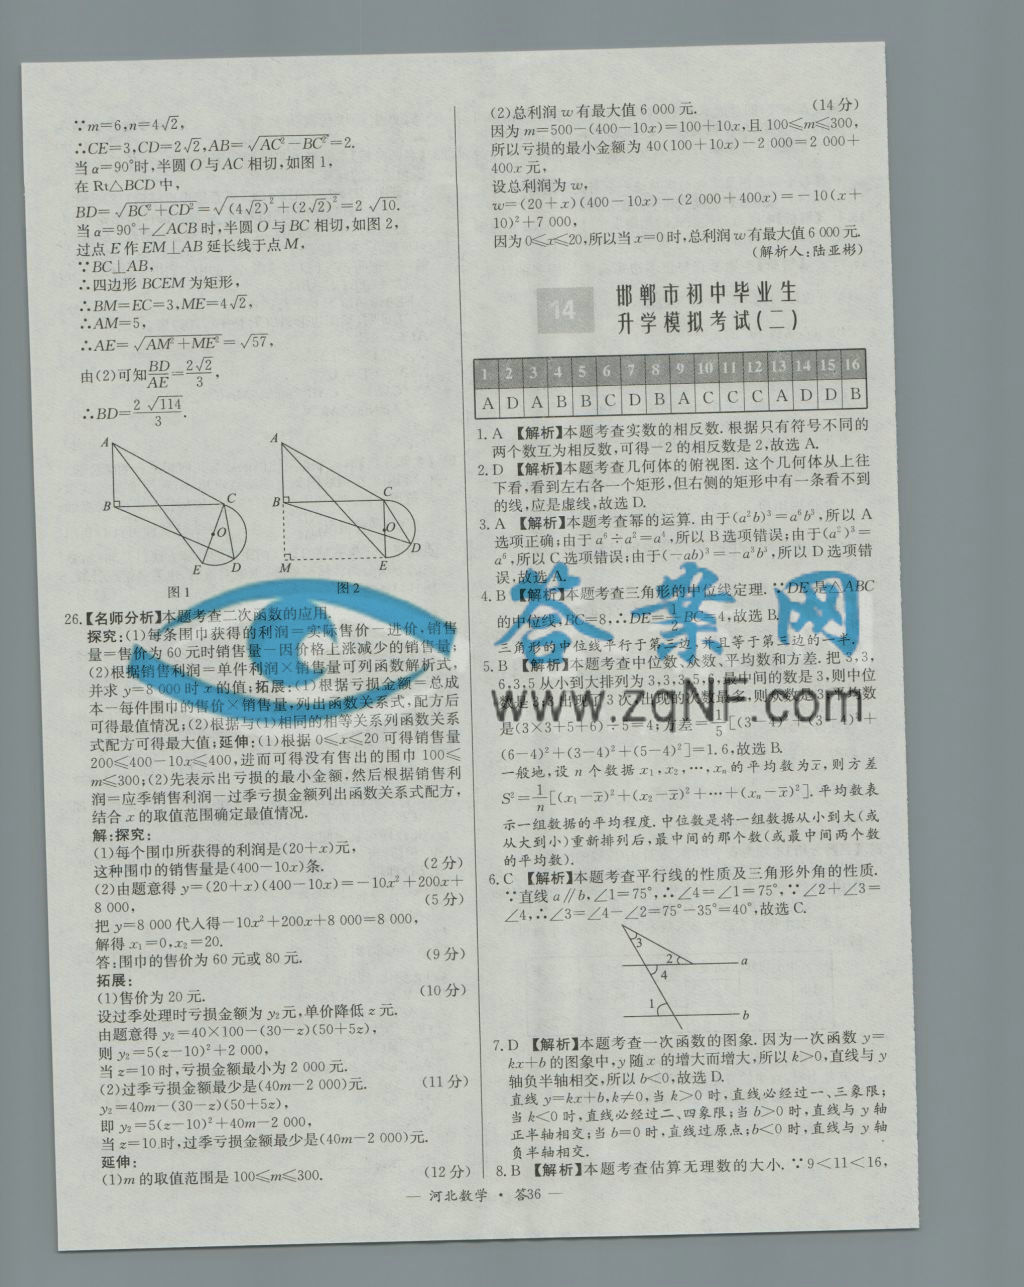 ∵m=6,n=4√2,
∴CE=3,CD=2√2,AB=√(AC²-BC²)=2.
当α=90°时,半圆O与AC相切,如图1,
在Rt△BCD中,
BD=√(BC²+CD²)=√((4√2)²+(2√2)²)=2√10.
当α=90°+∠ACB时,半圆O与BC相切,如图2,
过点E作EM⊥AB延长线于点M,
∵BC⊥AB,
∴四边形BCEM为矩形,
∴BM=EC=3,ME=4√2,
∴AM=5,
∴AE=√(AM²+ME²)=√57,
由(2)可知BD/AE=2√2/3,
∴BD=2√114/3.
A
B
C
O
E
D
图1
A
B
C
O
D
M
E
图2
26.【名师分析】本题考查二次函数的应用.
探究:(1)每条围巾获得的利润=实际售价-进价,销售
量=售价为60元时销售量-因价格上涨减少的销售量;
(2)根据销售利润=单件利润×销售量可列函数解析式,
并求y=8 000时x的值;拓展:(1)根据亏损金额=总成
本-每件围巾的售价×销售量,列出函数关系式,配方后
可得最值情况;(2)根据与(1)相同的相等关系列函数关系
式配方可得最大值;延伸:(1)根据0≤x≤20可得销售量
200≤400-10x≤400,进而可得没有售出的围巾100≤
m≤300;(2)先表示出亏损的最小金额,然后根据销售利
润=应季销售利润-过季亏损金额列出函数关系式配方,
结合x的取值范围确定最值情况.
解:探究:
(1)每个围巾所获得的利润是(20+x)元,
这种围巾的销售量是(400-10x)条. (2分)
(2)由题意得y=(20+x)(400-10x)=-10x²+200x+
8 000, (5分)
把y=8 000代入得-10x²+200x+8 000=8 000,
解得x₁=0,x₂=20.
答:围巾的售价为60元或80元. (9分)
拓展:
(1)售价为20元. (10分)
设过季处理时亏损金额为y₂元,单价降低z元.
由题意得y₂=40×100-(30-z)(50+5z),
则y₂=5(z-10)²+2 000,
当z=10时,亏损金额最小为2 000元.
(2)过季亏损金额最少是(40m-2 000)元. (11分)
y₂=40m-(30-z)(50+5z),
即y₂=5(z-10)²+40m-2 000,
当z=10时,过季亏损金额最少是(40m-2 000)元.
延伸:
(1)m的取值范围是100≤m≤300. (12分)
(2)总利润w有最大值6 000元. (14分)
因为m=500-(400-10x)=100+10x,且100≤m≤300,
所以亏损的最小金额为40(100+10x)-2 000=2 000+
400x元,
设总利润为w,
w=(20+x)(400-10x)-(2 000+400x)=-10(x+
10)²+7 000,
因为0≤x≤20,所以当x=0时,总利润w有最大值6 000元.
(解析人:陆亚彬)
14 邯郸市初中毕业生
升学模拟考试(二)
1 2 3 4 5 6 7 8 9 10 11 12 13 14 15 16
A D A B B C D B A C C C A D D B
1. A 【解析】本题考查实数的相反数.根据只有符号不同的
两个数互为相反数,可得-2的相反数是2,故选A.
2. D 【解析】本题考查几何体的俯视图.这个几何体从上往
下看,看到左右各一个矩形,但右侧的矩形中有一条看不到
的线,应是虚线,故选D.
3. A 【解析】本题考查幂的运算.由于(a²b)³=a⁶b³,所以A
选项正确;由于a⁶÷a²=a⁴,所以B选项错误;由于(a²)³=
a⁶,所以C选项错误;由于(-ab)³=-a³b³,所以D选项错
误,故选A.
4. B 【解析】本题考查三角形的中位线定理.∵DE是△ABC
的中位线,BC=8,∴DE=1/2BC=4,故选B.
三角形的中位线平行于第三边,并且等于第三边的一半.
5. B 【解析】本题考查中位数、众数、平均数和方差.把3,3,
6,3,5从小到大排列为3,3,3,5,6,最中间的数是3,则中位
是(3×3+5+6)÷5=4;方差=1/5[(3-4)²+
(6-4)²+(3-4)²+(5-4)²]=1.6,故选B.
一般地,设n个数据x₁,x₂,…,xₙ的平均数为x̄,则方差
S²=1/n[(x₁-x̄)²+(x₂-x̄)²+…+(xₙ-x̄)²].平均数表
示一组数据的平均程度.中位数是将一组数据从小到大(或
从大到小)重新排列后,最中间的那个数(或最中间两个数
的平均数).
6. C 【解析】本题考查平行线的性质及三角形外角的性质.
∵直线a∥b,∠1=75°,∴∠4=∠1=75°,∵∠2+∠3=
∠4,∴∠3=∠4-∠2=75°-35°=40°,故选C.
3
2
a
4
1
b
7. D 【解析】本题考查一次函数的图象.因为一次函数y=
kx+b的图象中,y随x的增大而增大,所以k>0,直线与y
轴负半轴相交,所以b<0,故选D.
直线y=kx+b,k≠0,当k>0时,直线必经过一、三象限;
当k<0时,直线必经过二、四象限;当b>0时,直线与y轴
正半轴相交;当b=0时,直线过原点;b<0时,直线与y轴
负半轴相交.
8. B 【解析】本题考查估算无理数的大小.∵9<11<16,
— 河北数学·答36 —
答案网
www.zqNF.com